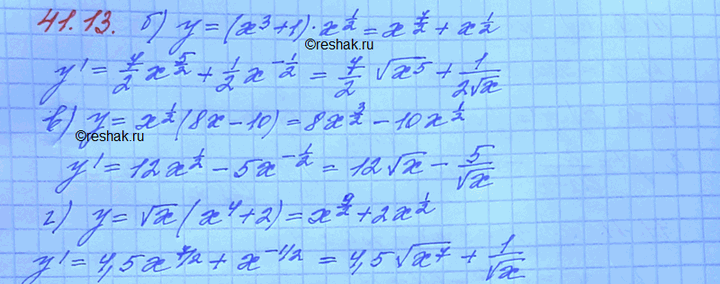 41.13. б) y = (x³+1)·x^{1/2} = x^{7/2} + x^{1/2}
©reshak.ru
y' = 7/2 x^{5/2} + 1/2 x^{-1/2} = 7/2 √x⁵ + 1/(2√x)
в) y = x^{1/2}(8x-10) = 8x^{3/2} - 10x^{1/2}
©reshak.ru
y' = 12x^{1/2} - 5x^{-1/2} = 12√x - 5/√x
г) y = √x(x⁴+2) = x^{9/2} + 2x^{1/2}
y' = 4,5x^{7/2} + x^{-1/2} = 4,5√x⁷ + 1/√x